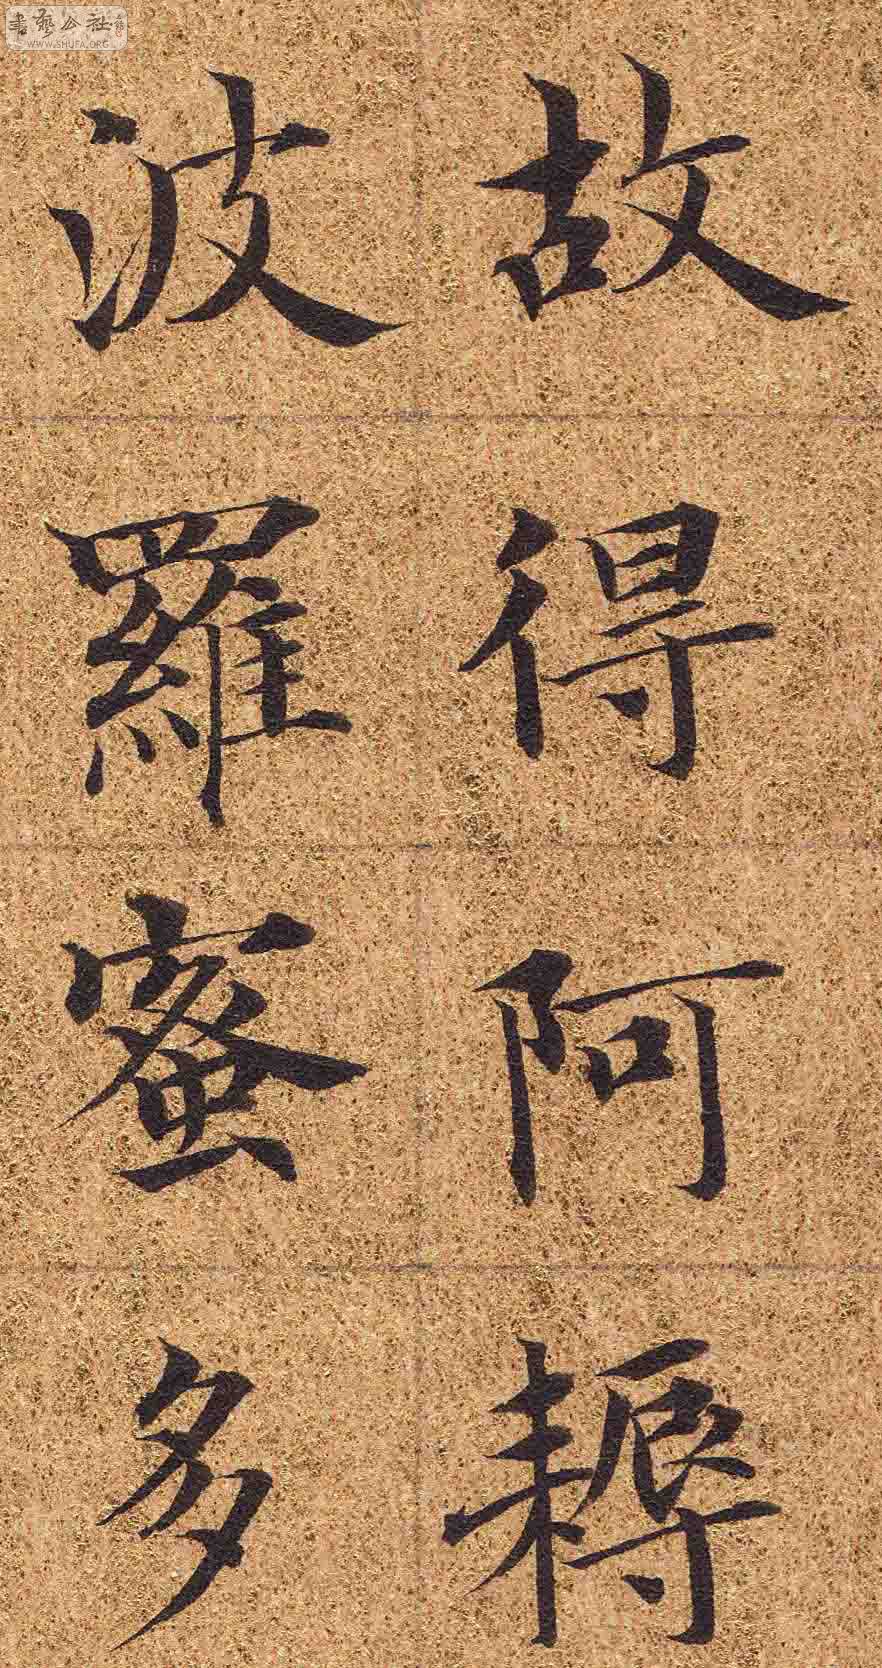 書藝公社
WWW.SHUFA.ORG
故得阿耨
波羅蜜多